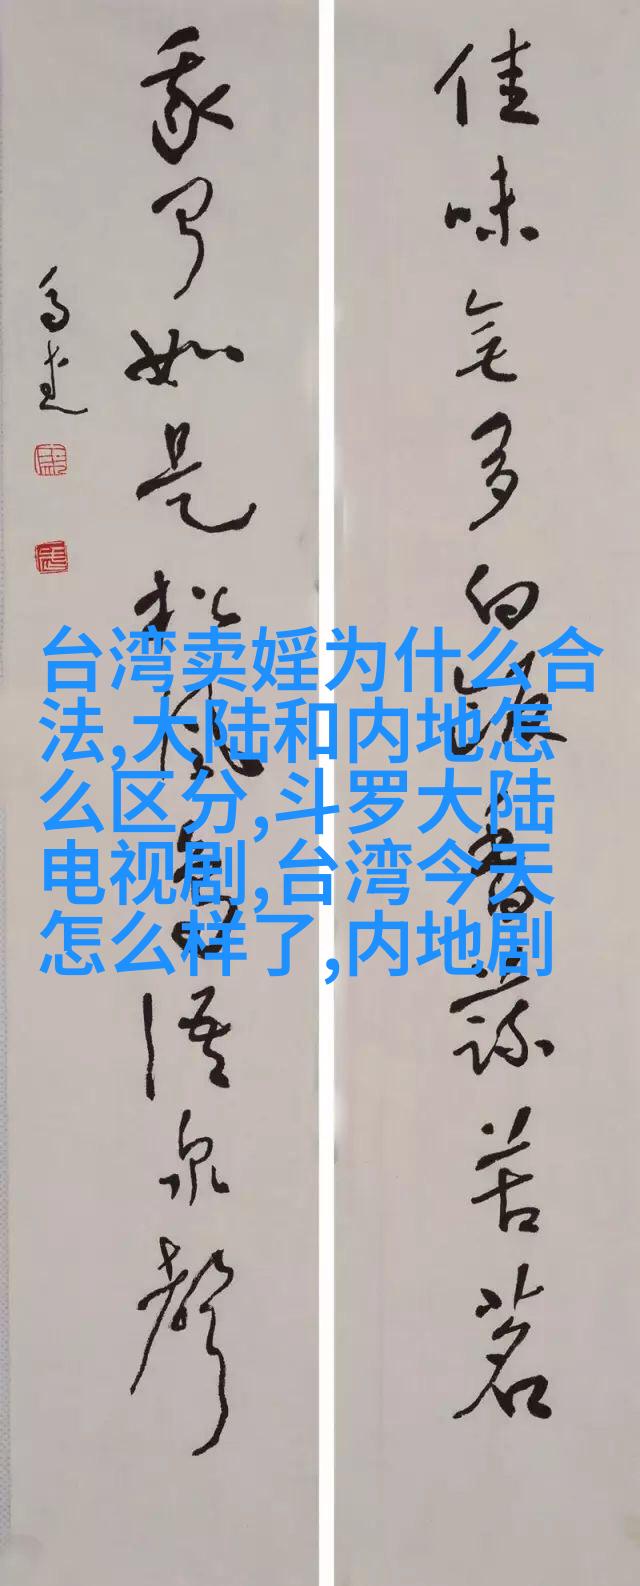 佳味無多白飯香蔬苦茗
我聞如是松風鳥語泉聲
台湾卖婬为什么合
法,大陆和内地怎
么区分,斗罗大陆
电视剧,台湾今天
怎么样了,内地剧